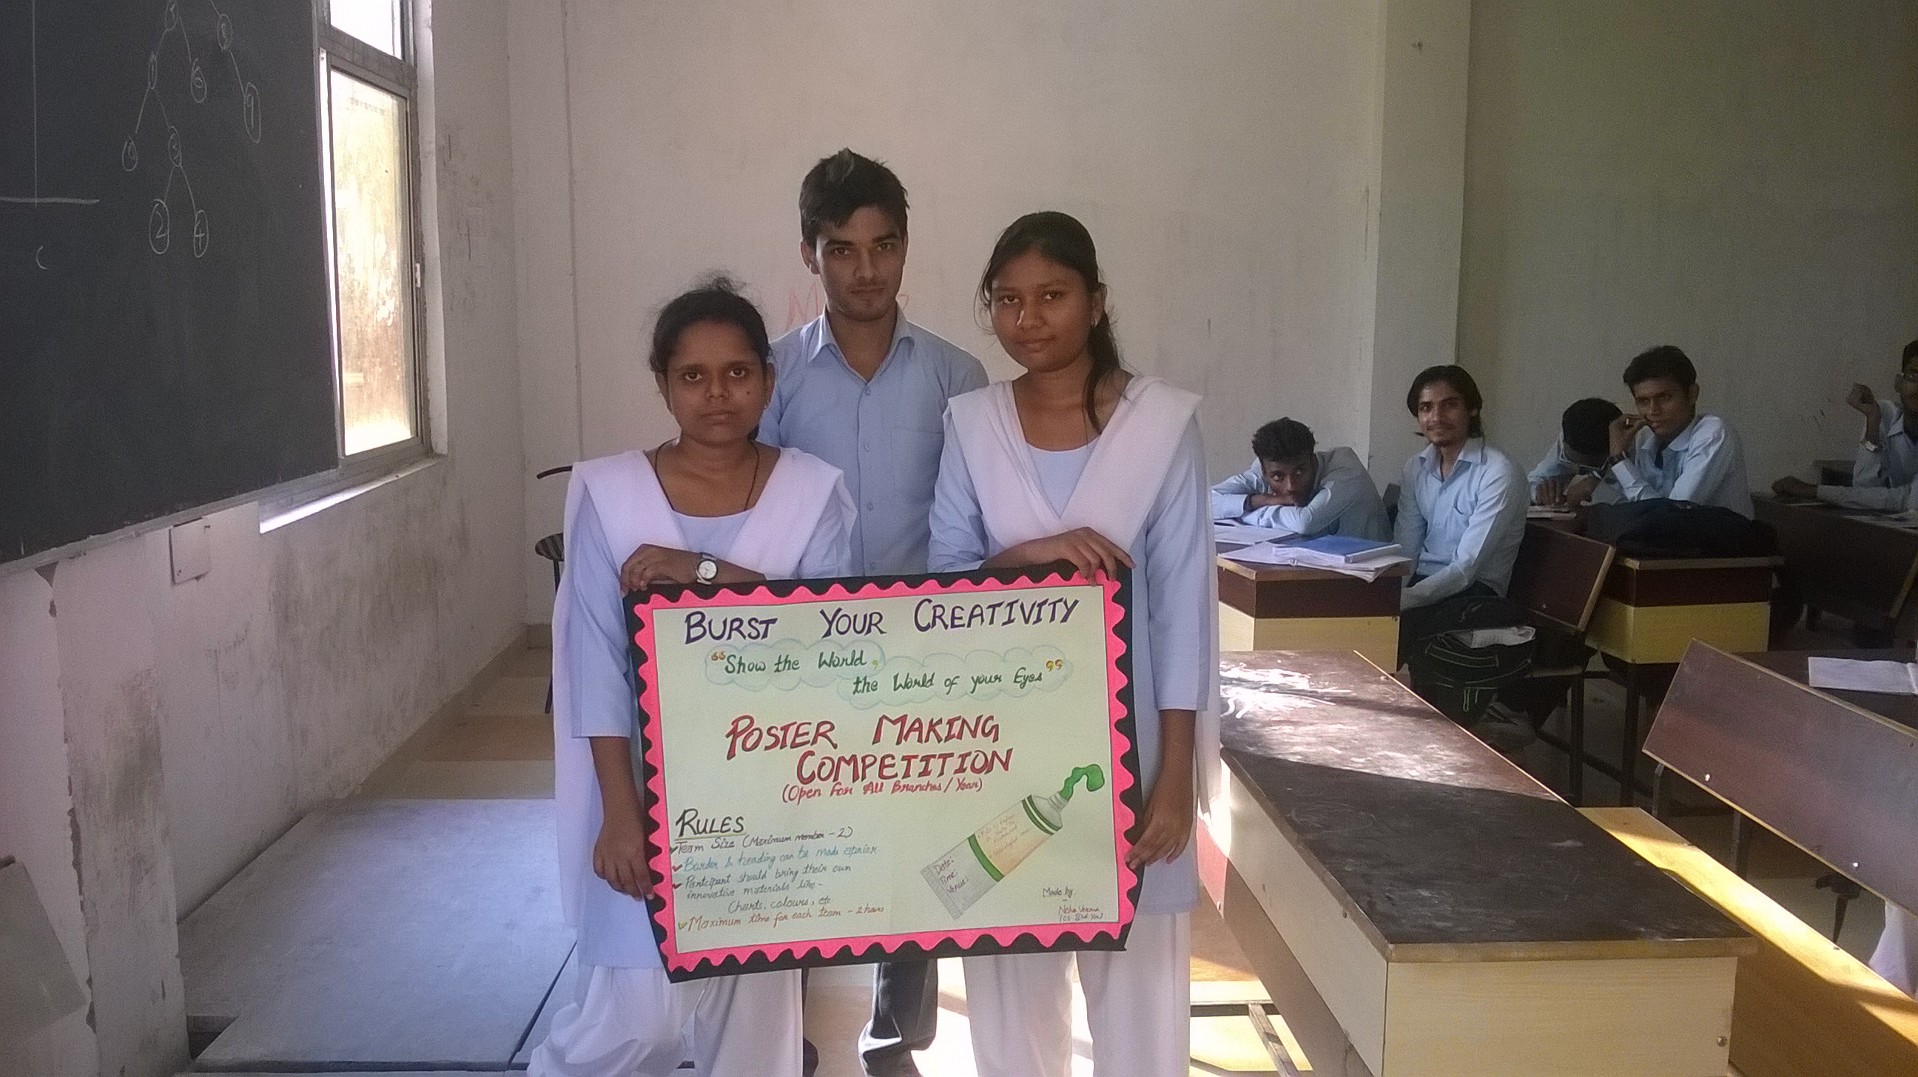 BURST YOUR CREATIVITY
"Show the World,
the World of your Eyes"
POSTER MAKING
COMPETITION
(Open for All Branches/Year)
RULES
Team Size (Maximum member - 2)
Border & heading can be made
Participant should bring their own
innovative materials like -
Charts, colours, etc
Maximum time for each team - 2 hours
Date:
Time:
Venue:
Made by
Neha
5
8
1
6
9
0
3
2
4